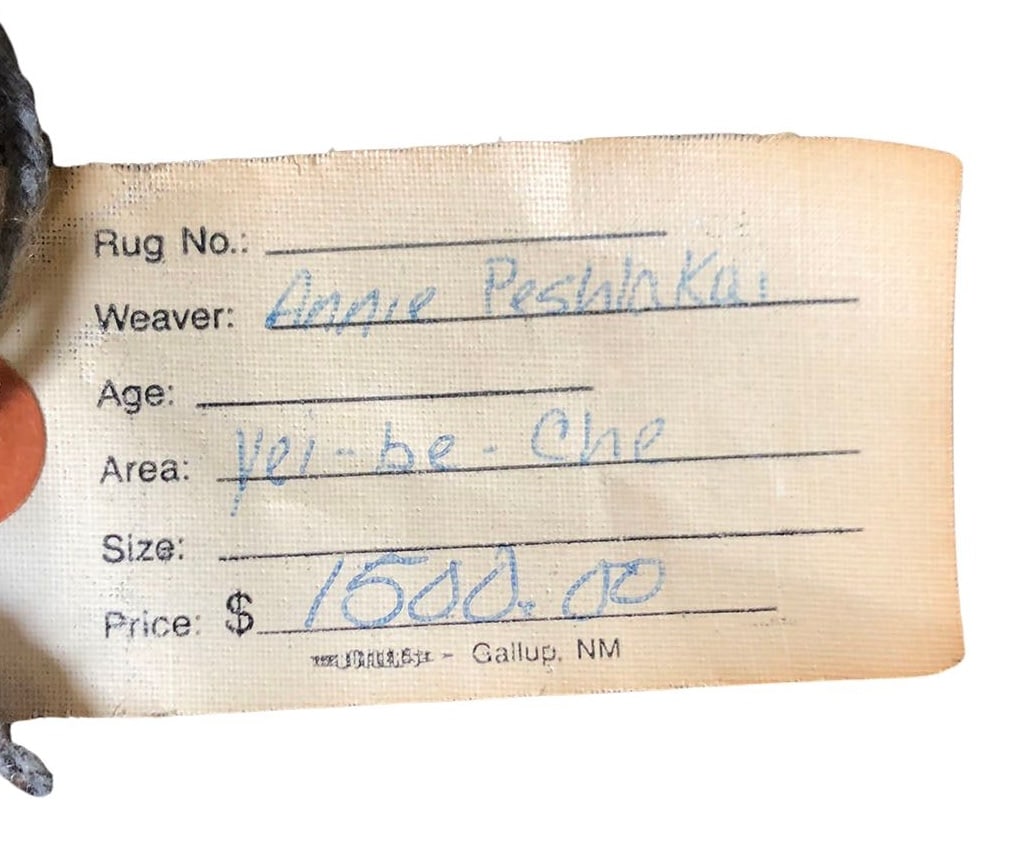 Rug No.:
Weaver: Annie Peshlakai
Age:
Area: Yei-be-Che
Size:
Price: $ 1500.00
- Gallup, NM